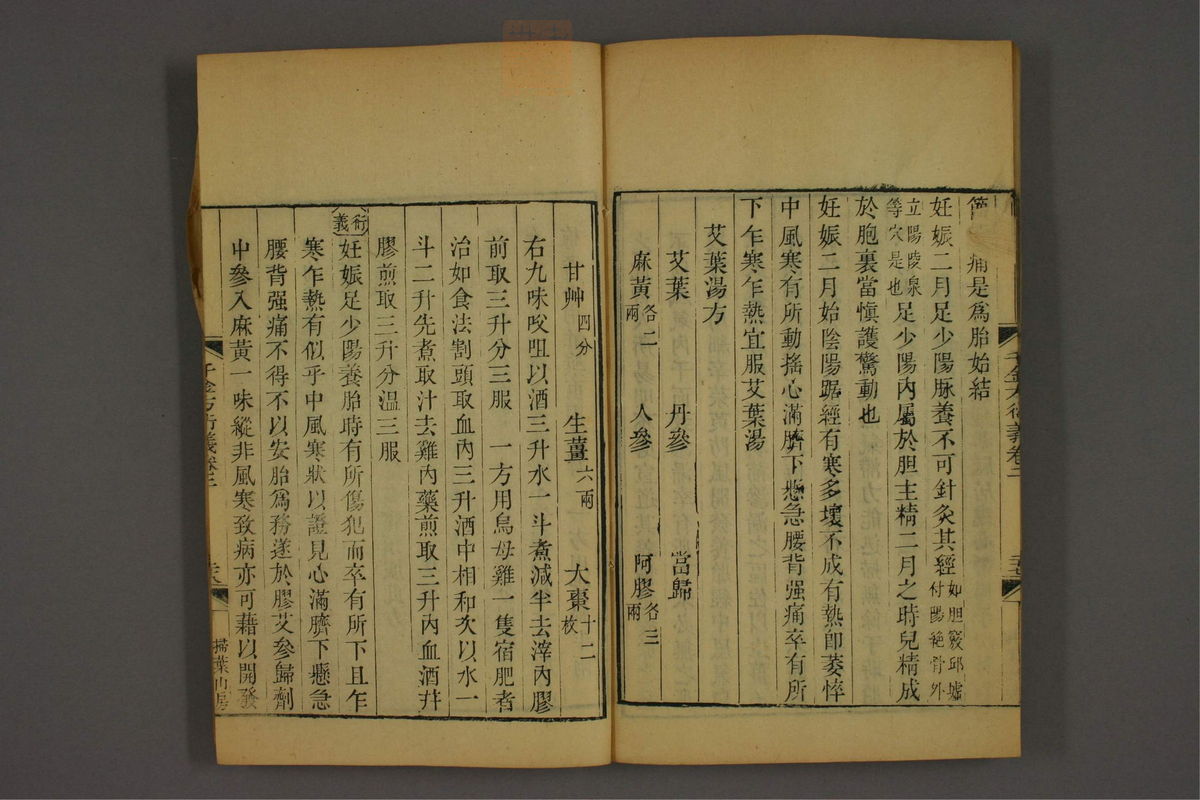 痛是爲胎始結
妊娠二月足少陽脉養不可針灸其經如胆竅邱墟付陽絶骨外
立陽陵泉等穴是也足少陽内屬於胆主精二月之時兒精成
於胞裏當慎護驚動也
妊娠二月始陰陽踞經有寒多壞不成有熱卽萎悴
中風寒有所動搖心滿臍下懸急腰背强痛卒有所
下乍寒乍熱宜服艾葉湯
艾葉湯方
艾葉 丹參 當歸
麻黃各二兩 人參 阿膠各三兩
甘艸四分 生薑六兩 大棗十二枚
右九味㕮咀以酒三升水一斗煮減半去滓內膠
前取三升分三服 一方用烏母雞一隻宿肥者
治如食法割頭取血內三升酒中相和次以水一
斗二升先煮取汁去雞內藥煎取三升內血酒幷
膠煎取三升分溫三服
衍義
妊娠足少陽養胎時有所傷犯而卒有所下且乍
寒乍熱有似乎中風寒狀以證見心滿臍下懸急
腰背强痛不得不以安胎爲務遂於膠艾參歸劑
中參入麻黃一味縱非風寒致病亦可藉以開發
千金方衍義卷二
掃葉山房